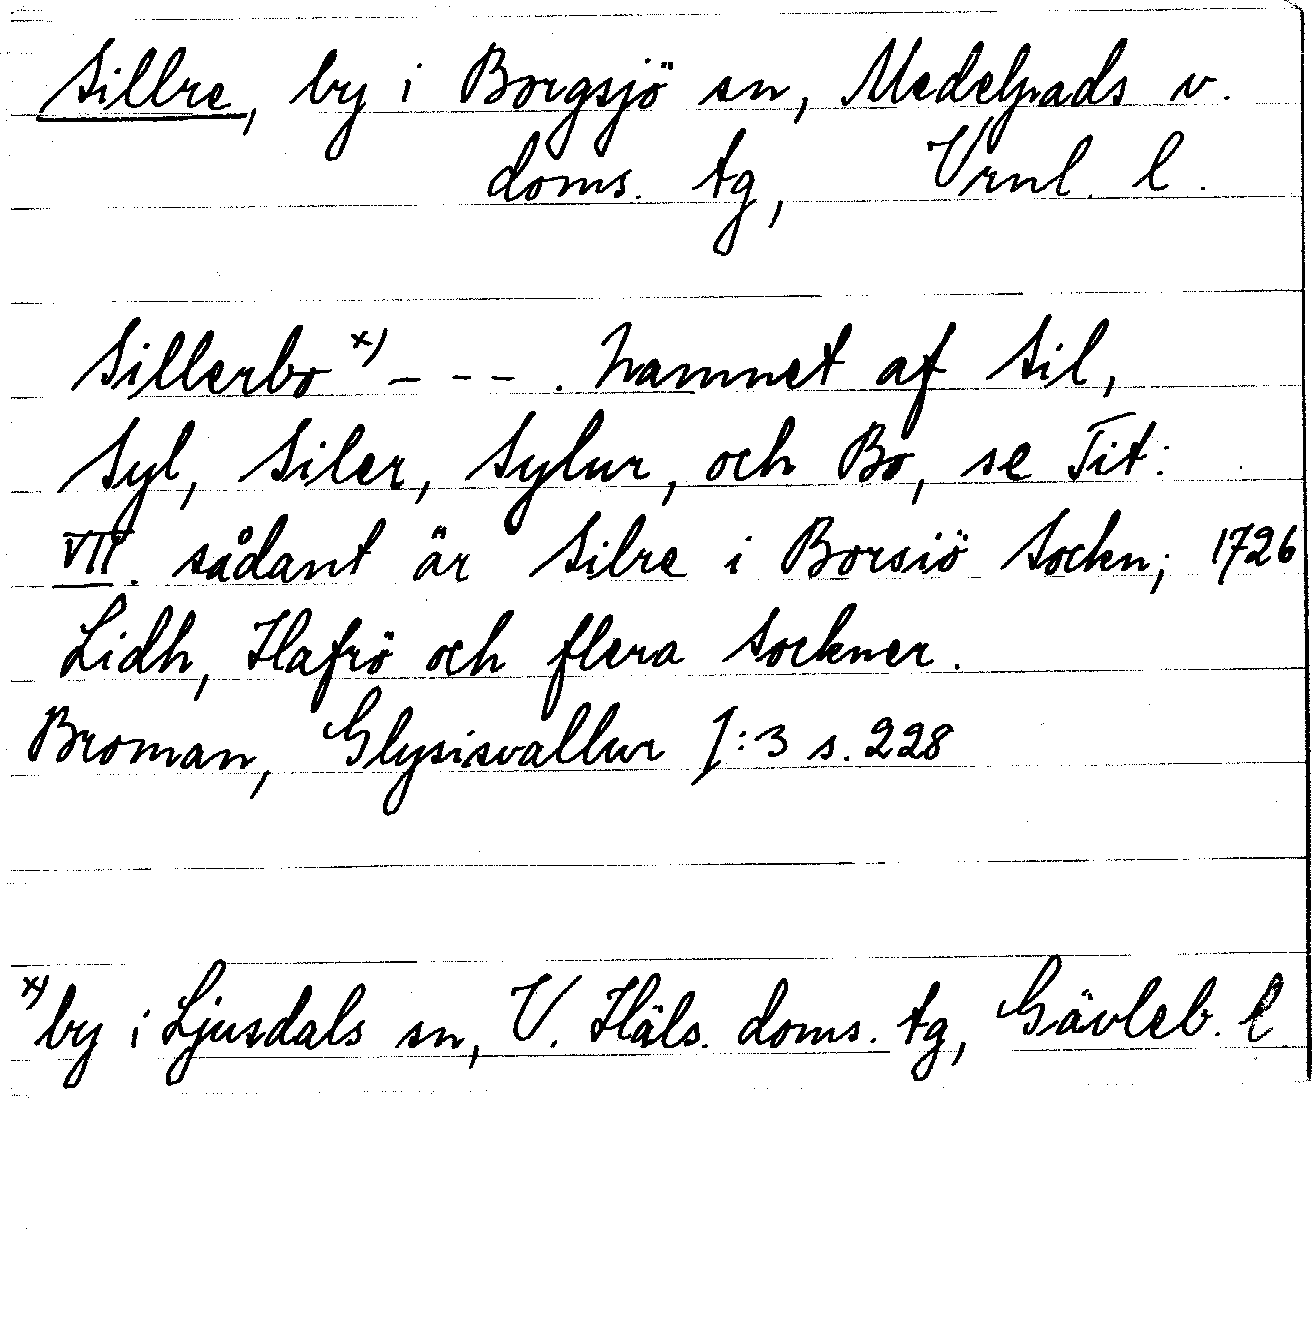 Sillre, by i Borgsjö sn, Medelpads v.
doms. tg, Vrnl. l.
Sillerbo x) - - - . hamnet af Sil,
Syl, Siler, Sylur, och Bo, se Tit:
VII. sådant är Silre i Borsiö Sockn; 1726
Lidh, Hafrö och flera Sockner.
Broman, Glysisvallur I:3 s. 228
x) by i Ljusdals sn, V. Häls. doms. tg, Gävleb. l